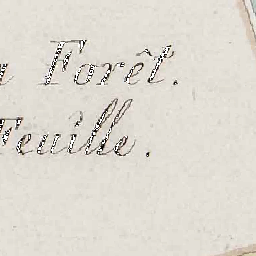 Forêt.
Feuille.